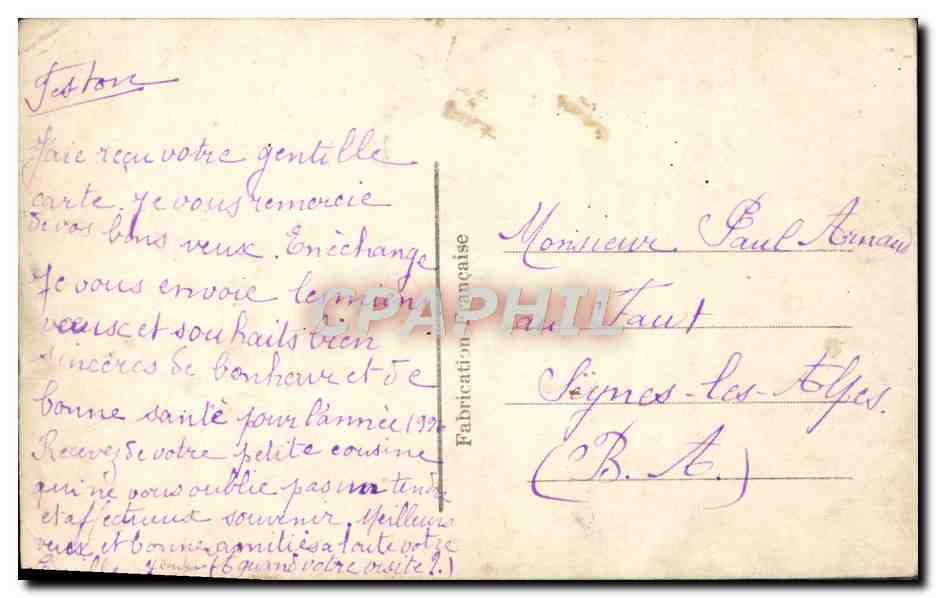 J'aie reçu votre gentille
carte. Je vous remercie
de vos bons veux. En èchange
Je vous envoie les miens
vœux et souhaits bien
sincéres de bonheur et de
bonne santè pour l'annèe
Recevez de votre petite cousine
qui ne vous oublie pas un tendre
et affectueux souvenir. Meilleurs
veux et bonne amitiés a toute votre
(à quand votre visite?.)
Fabrication Française
CPAPHIL
Monsieur Paul Arnaud
au Faut
Seynes-les-Alpes.
(B. A.)